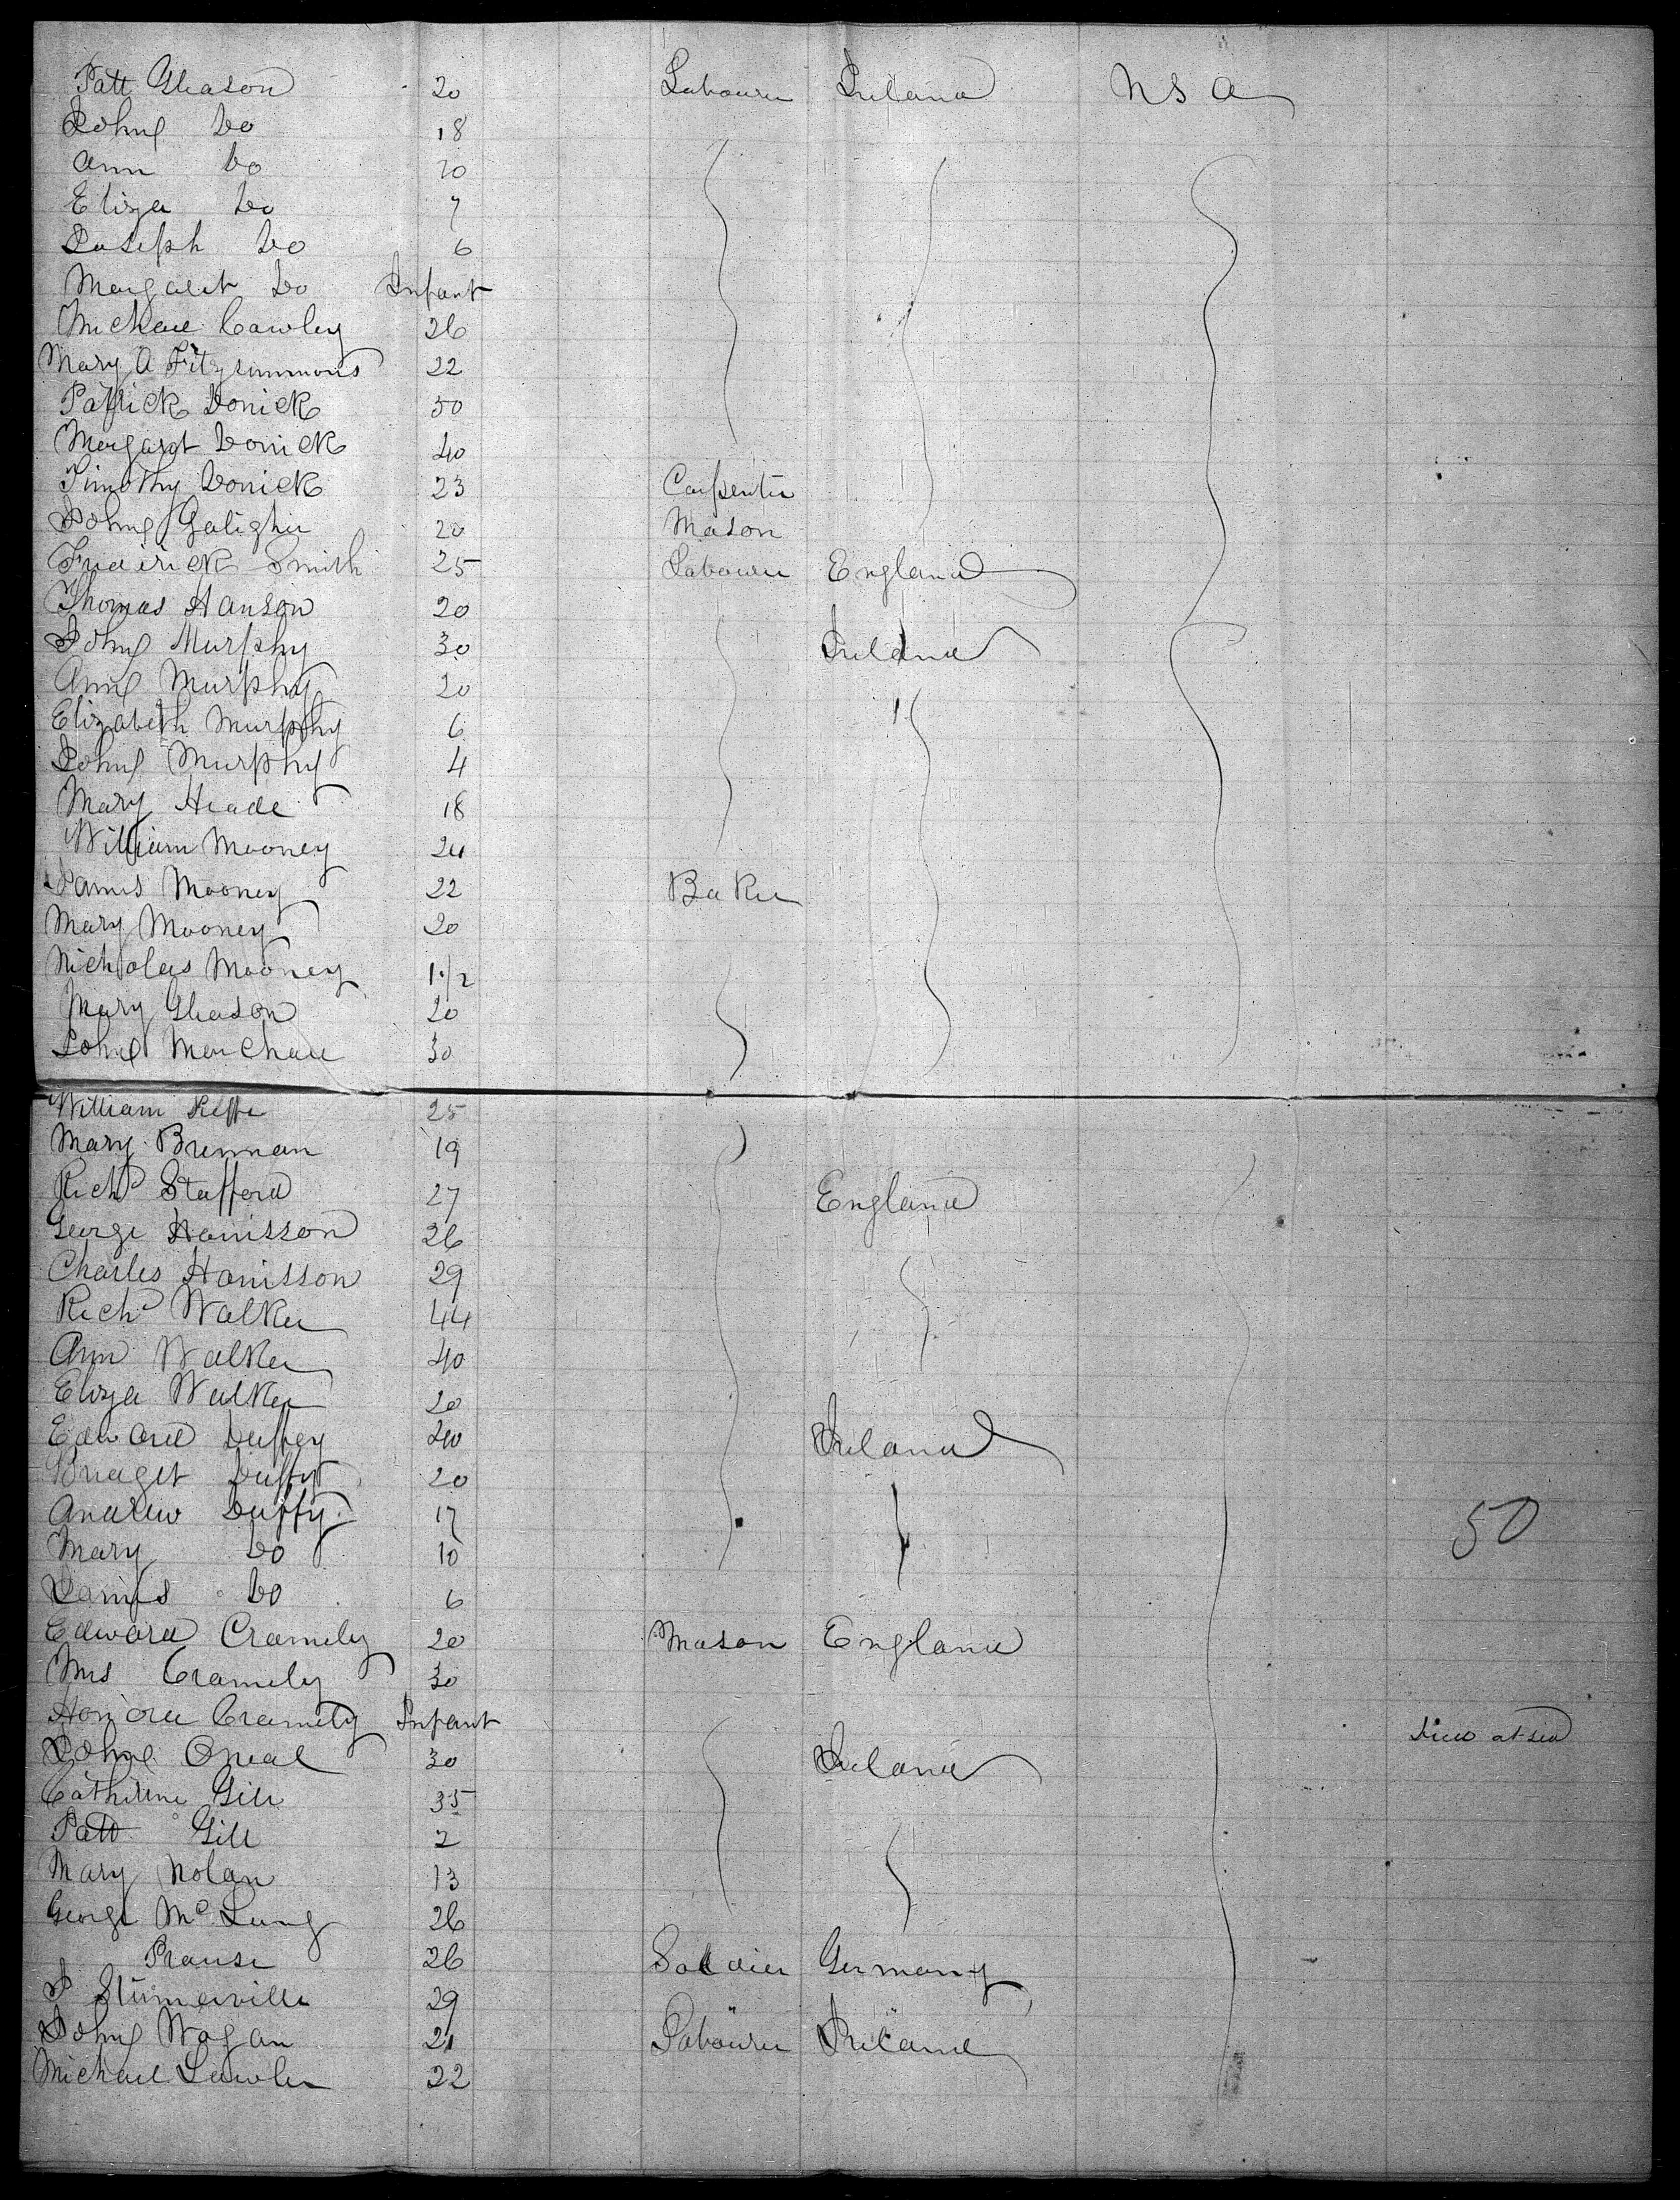 Patt Gleason 20 Labourer Ireland U S A
John Do 18
Ann Do 10
Eliza Do 7
Joseph Do 6
Margaret Do Infant
Michael Cawley 26
Mary A Fitzsimmons 22
Patrick Donick 50
Margaret Donick 40
Timothy Donick 23 Carpenter
John Galigher 20 Mason
Frederick Smith 25 Labourer England
Thomas Hanson 20
John Murphy 30 Ireland
Ann Murphy 20
Elizabeth Murphy 6
John Murphy 4
Mary Heade 18
William Mooney 24
James Mooney 22 Baker
Mary Mooney 20
Nicholas Mooney 1 1/2
Mary Gleason 20
John 30
William 25
Mary Brennan 19
Richd Stafford 27 England
George Harrisson 26
Charles Harrisson 29
Richd Walker 44
Ann Walker 40
Eliza Walker 20
Edward Duffey 40 Ireland
Bridget Duffy 20
Andrew Duffy 17 50
Mary Do 10
James Do 6
Edward Cramely 20 Mason England
Mrs Cramely 30
Honora Cramely Infant Died at sea
John Oneal 30 Ireland
Catherine Gill 35
Patt Gill 2
Mary Nolan 13
George Mc Lung 26
Prause 26 Soldier Germany
29
John Wogan 21 Labourer Ireland
Michael Lawler 22